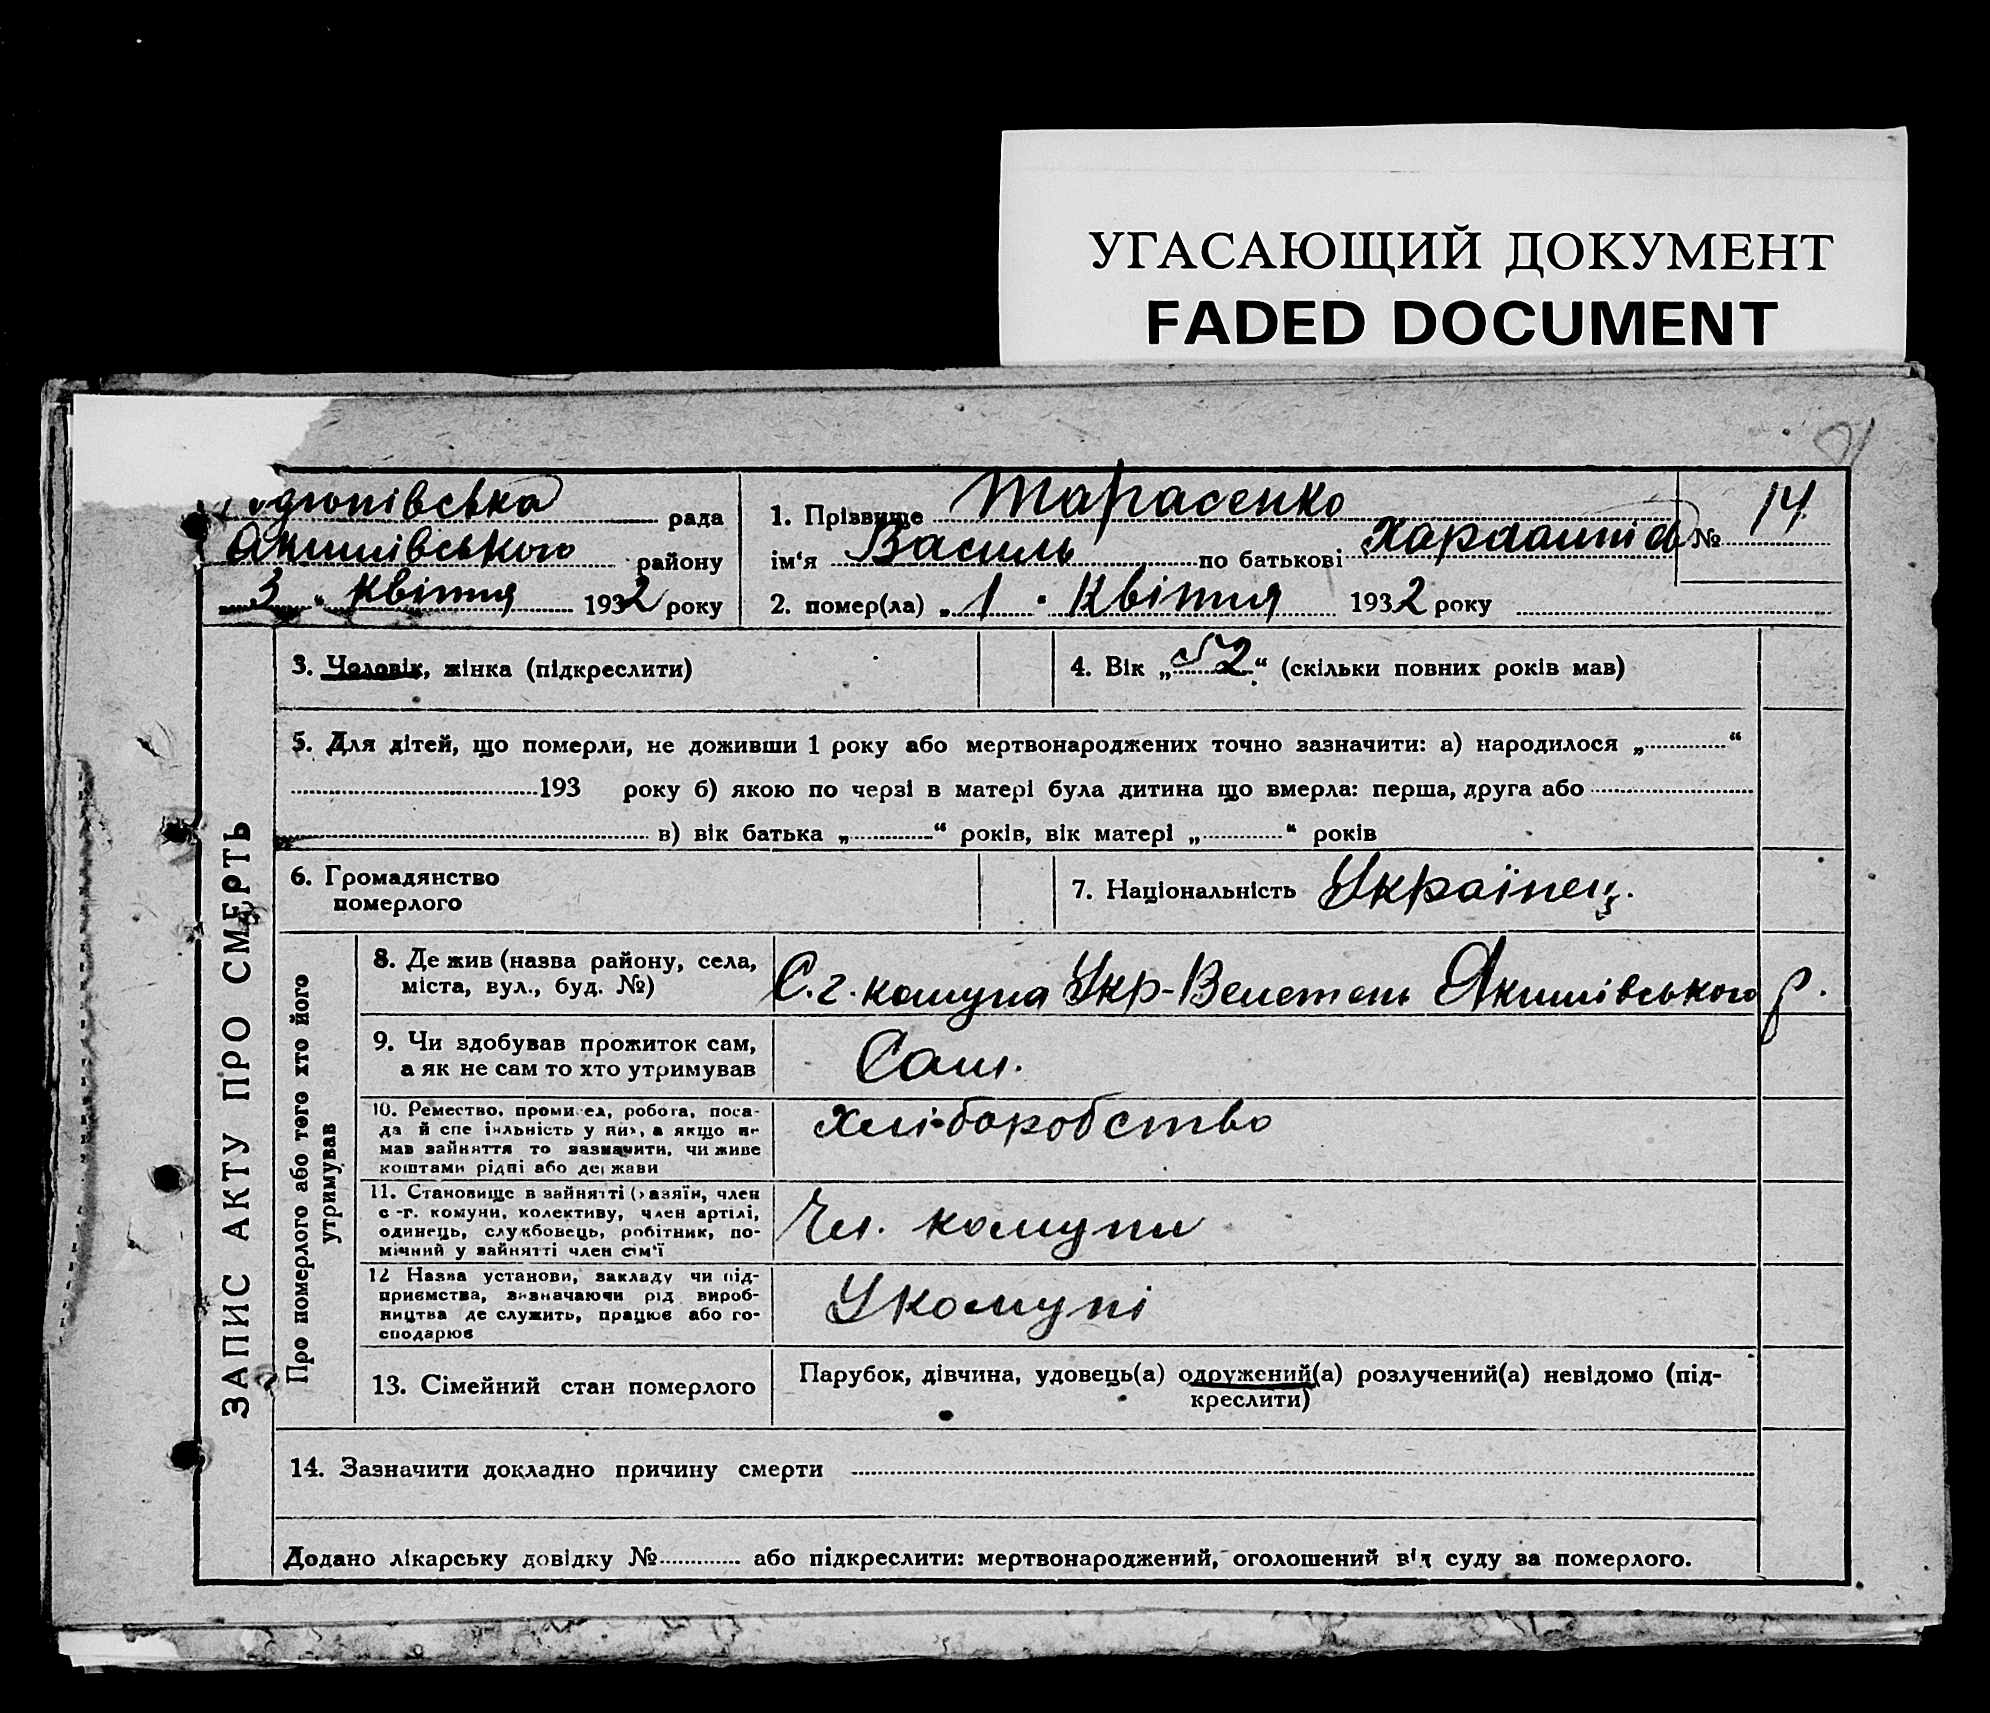 УГАСАЮЩИЙ ДОКУМЕНТ
FADED DOCUMENT
рада
Якимівського району
3 " квітня 1932 року
1. Прізвище Тарасенко
ім'я Василь по батькові
№ 14
2. помер(ла) „ 1 " Квітня 1932 року
ЗАПИС АКТУ ПРО СМЕРТЬ
3. Чоловік, жінка (підкреслити)
4. Вік „52“ (скільки повних років мав)
5. Для дітей, що померли, не доживши 1 року або мертвонароджених точно зазначити: а) народилося „ “
193 року б) якою по черзі в матері була дитина що вмерла: перша, друга або
в) вік батька „ “ років, вік матері „ “ років
6. Громадянство
померлого
7. Національність Українец.
Про померлого або того хто його
утримував
8. Де жив (назва району, села,
міста, вул., буд. №)
С.г. комуна Укр-Велетень Якимівського р.
9. Чи здобував прожиток сам,
а як не сам то хто утримував
Сам.
10. Ремество, промисел, робота, поса-
да й спеціяльність у ній, а якщо не
мав зайняття то зазначити, чи живе
коштами рідні або держави
Хліборобство
11. Становище в зайнятті (хазяїн, член
с.-г. комуни, колективу, член артілі,
одинець, службовець, робітник, по-
мічний у зайнятті член сім'ї
Чл. комуни
12 Назва установи, закладу чи під-
приємства, зазначаючи рід вироб-
ництва де служить, працює або го-
сподарює
У комуні
13. Сімейний стан померлого
Парубок, дівчина, удовець(а) одружений(а) розлучений(а) невідомо (під-
креслити)
14. Зазначити докладно причину смерти
Додано лікарську довідку № або підкреслити: мертвонароджений, оголошений від суду за померлого.